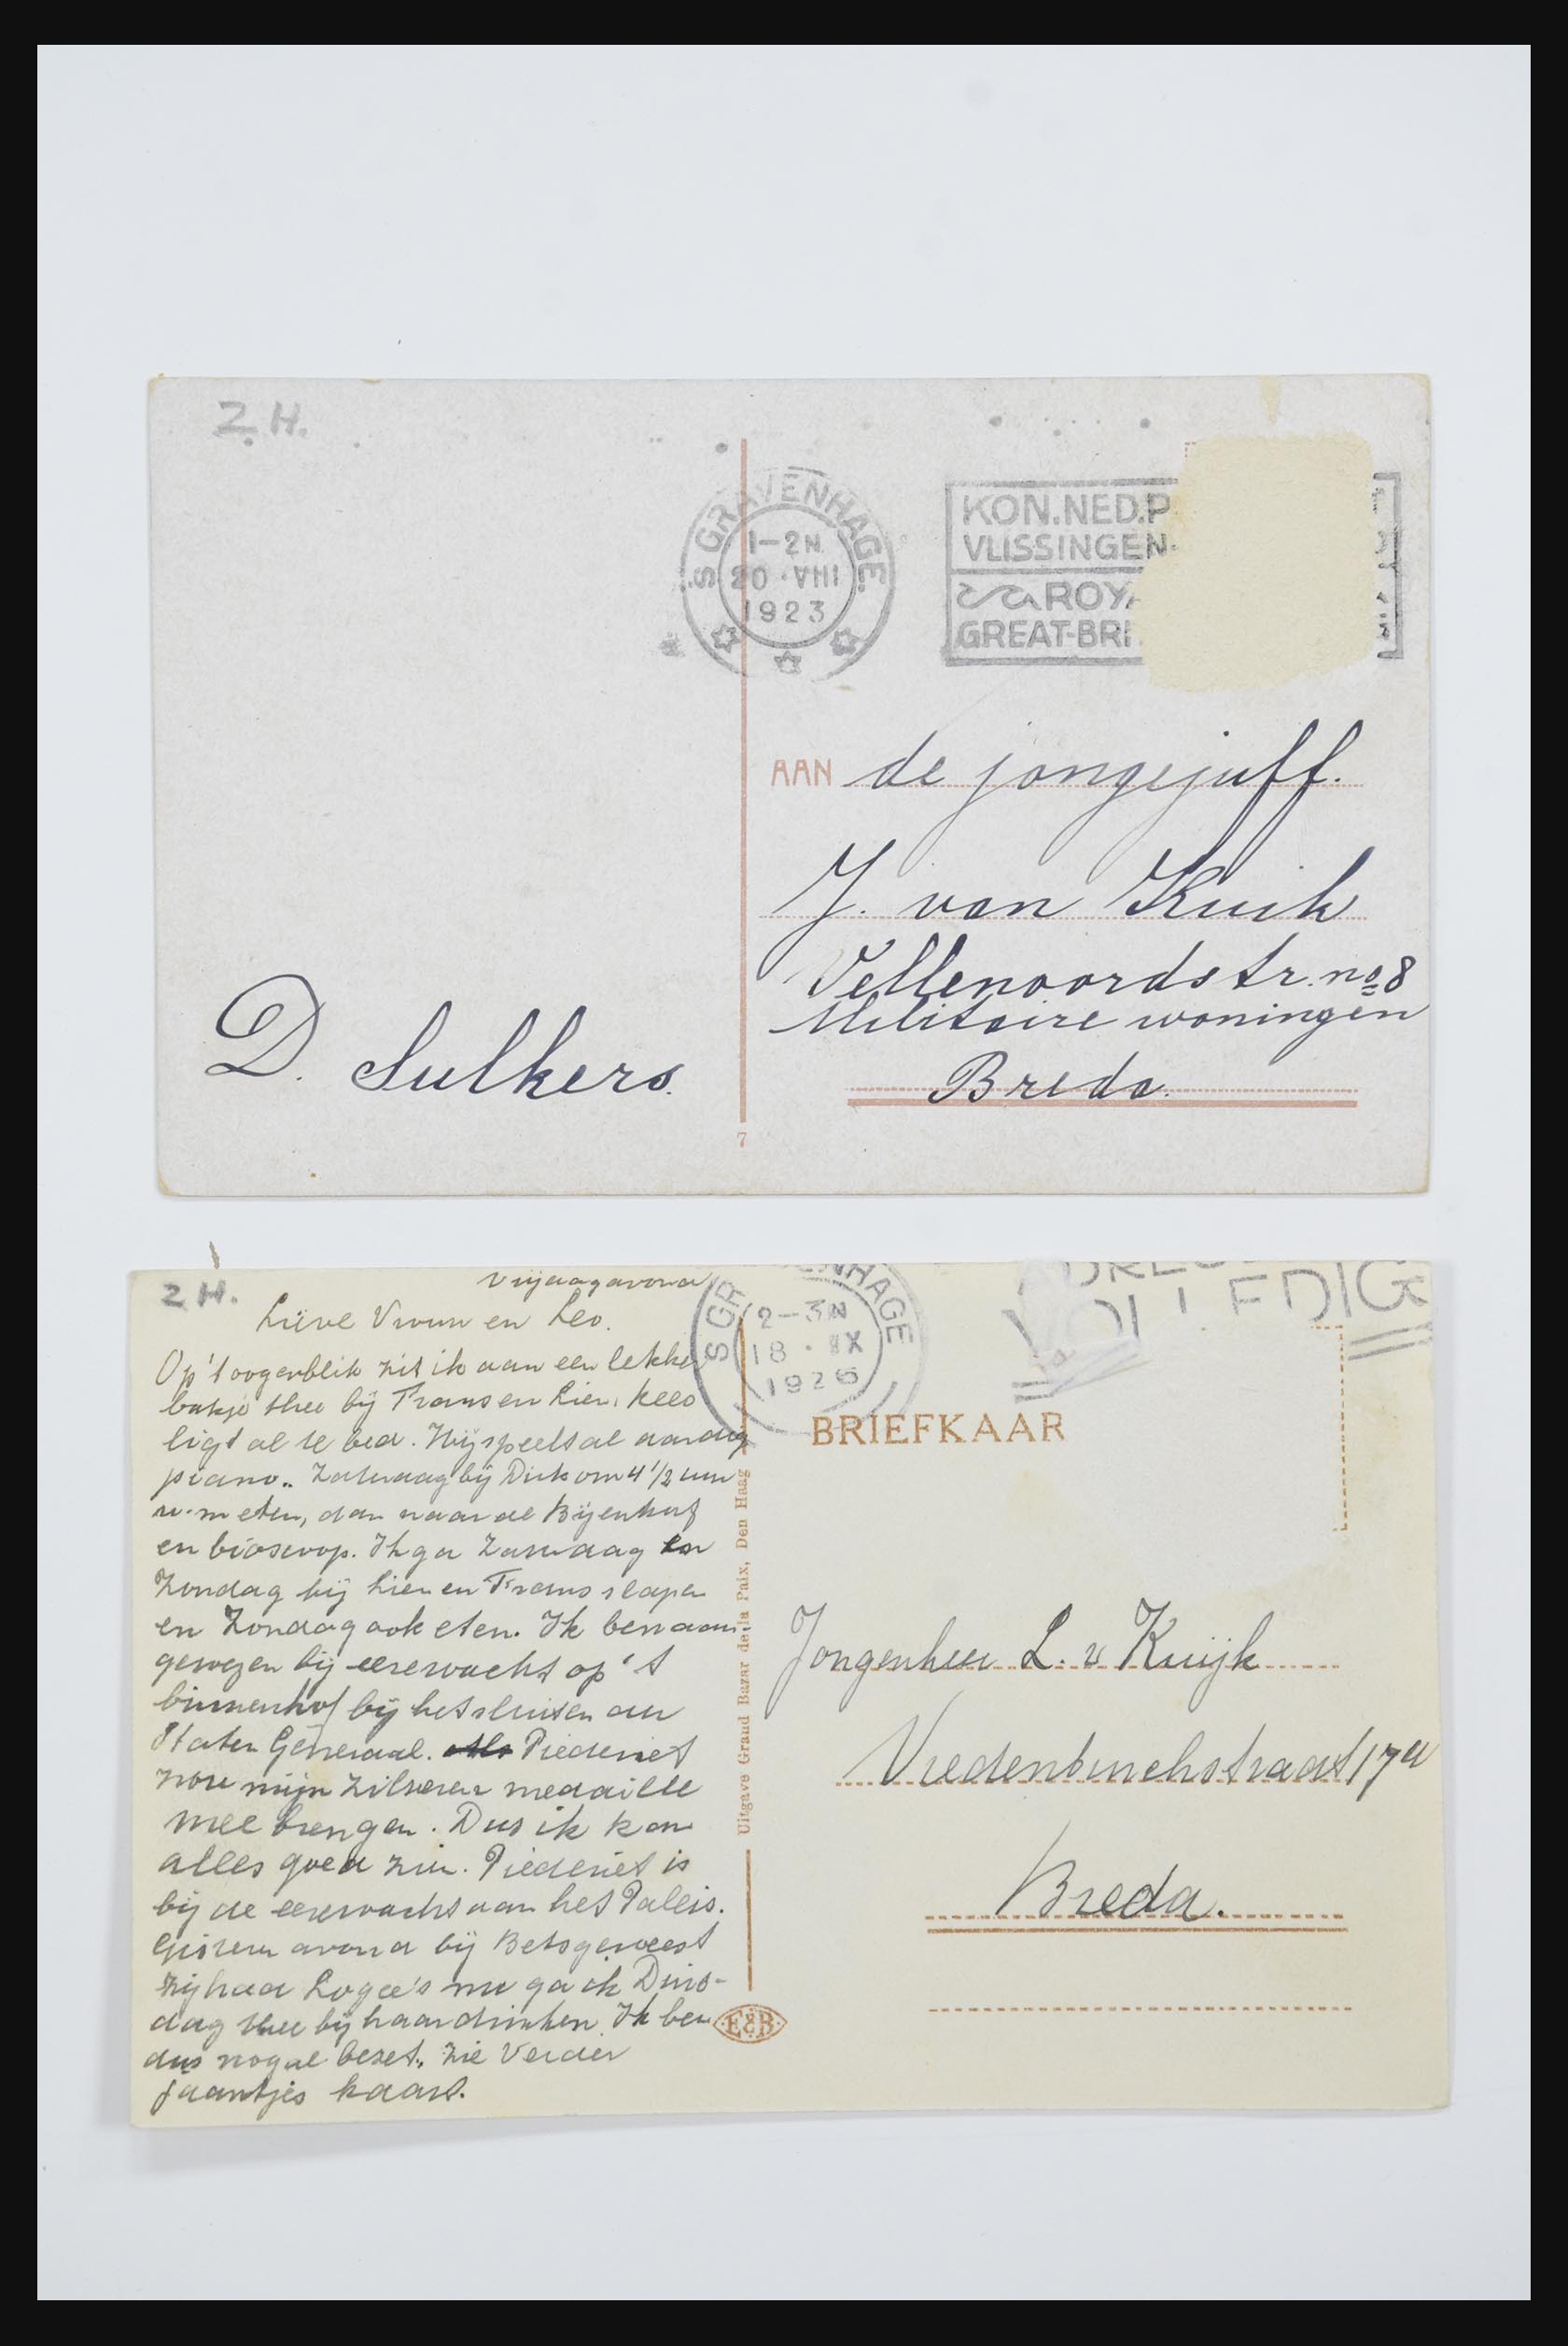 Z.H.
'S GRAVENHAGE.
1-2N
20 · VIII
1923
KON.NED.P
VLISSINGEN-
ROYA
GREAT-BRI
AAN de jongejuff.
J. van Kuik
Vellenoordstr. no 8
Militaire woningen
Breda.
D. Sulkers.
7
Z.H.
Vrijdagavond
Lieve Vrouw en Leo.
Op 't oogenblik zit ik aan een lekker
bakje thee bij Frans en Lien, Kees
ligt al te bed. Hij speelt al aardig
piano.. Zaterdag bij Dirk om 4 1/2 uur
n.m eten, dan naar de Bijenkorf
en bioscoop. Ik ga Zaterdag en
Zondag bij Lien en Frans slapen
en Zondag ook eten. Ik ben aan-
gewezen bij eerewacht op 't
binnenhof bij het sluiten der
Staten Generaal. Piederiet
mijn zilveren medaille
mee brengen. Dus ik kan
alles goed zien. Piederiet is
bij de eerewacht aan het Paleis.
Gisteren avond bij Bets geweest
zij had Logee's nu ga ik Dins-
dag thee bij haar drinken. Ik ben
dus nogal bezet., zie Verder
Jaantjes kaart.
S GR ENHAGE
2-3N
18 · IX
1926
VOLLEDIG
BRIEFKAAR
Uitgave Grand Bazar de la Paix, Den Haag
E&B
Jongenheer L. v Kuijk
Vredenburchstraat 17a
Breda.